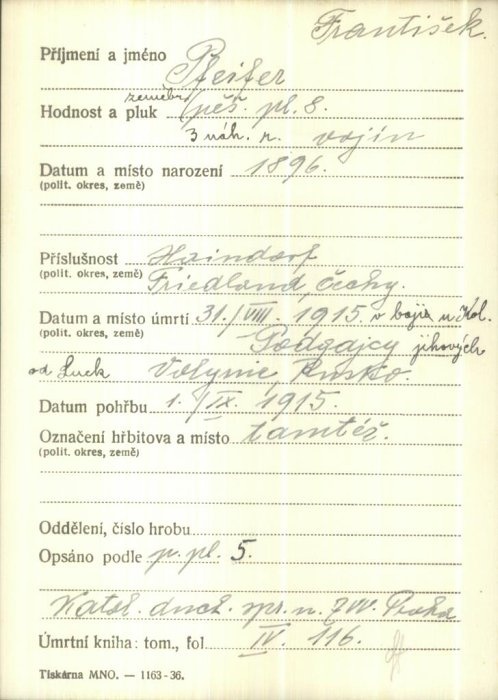 František.
Příjmení a jméno Pfeifer
Hodnost a pluk zeměbr. pěš. pl. 8.
3 náh. r. vojín
Datum a místo narození 1896.
(polit. okres, země)
Příslušnost Haindorf
(polit. okres, země) Friedland, Čechy.
Datum a místo úmrtí 31./VIII. 1915. v boji u Kol.
(polit. okres, země) Podgajcy jihových.
od Luck Volynie, Rusko.
Datum pohřbu 1./IX. 1915.
Označení hřbitova a místo tamtéž.
(polit. okres, země)
Oddělení, číslo hrobu
Opsáno podle p. pl. 5.
Katol. duch. spr. n. ZVV. Praha
Úmrtní kniha: tom., fol. IV. 116.
Tiskárna MNO. — 1163-36.